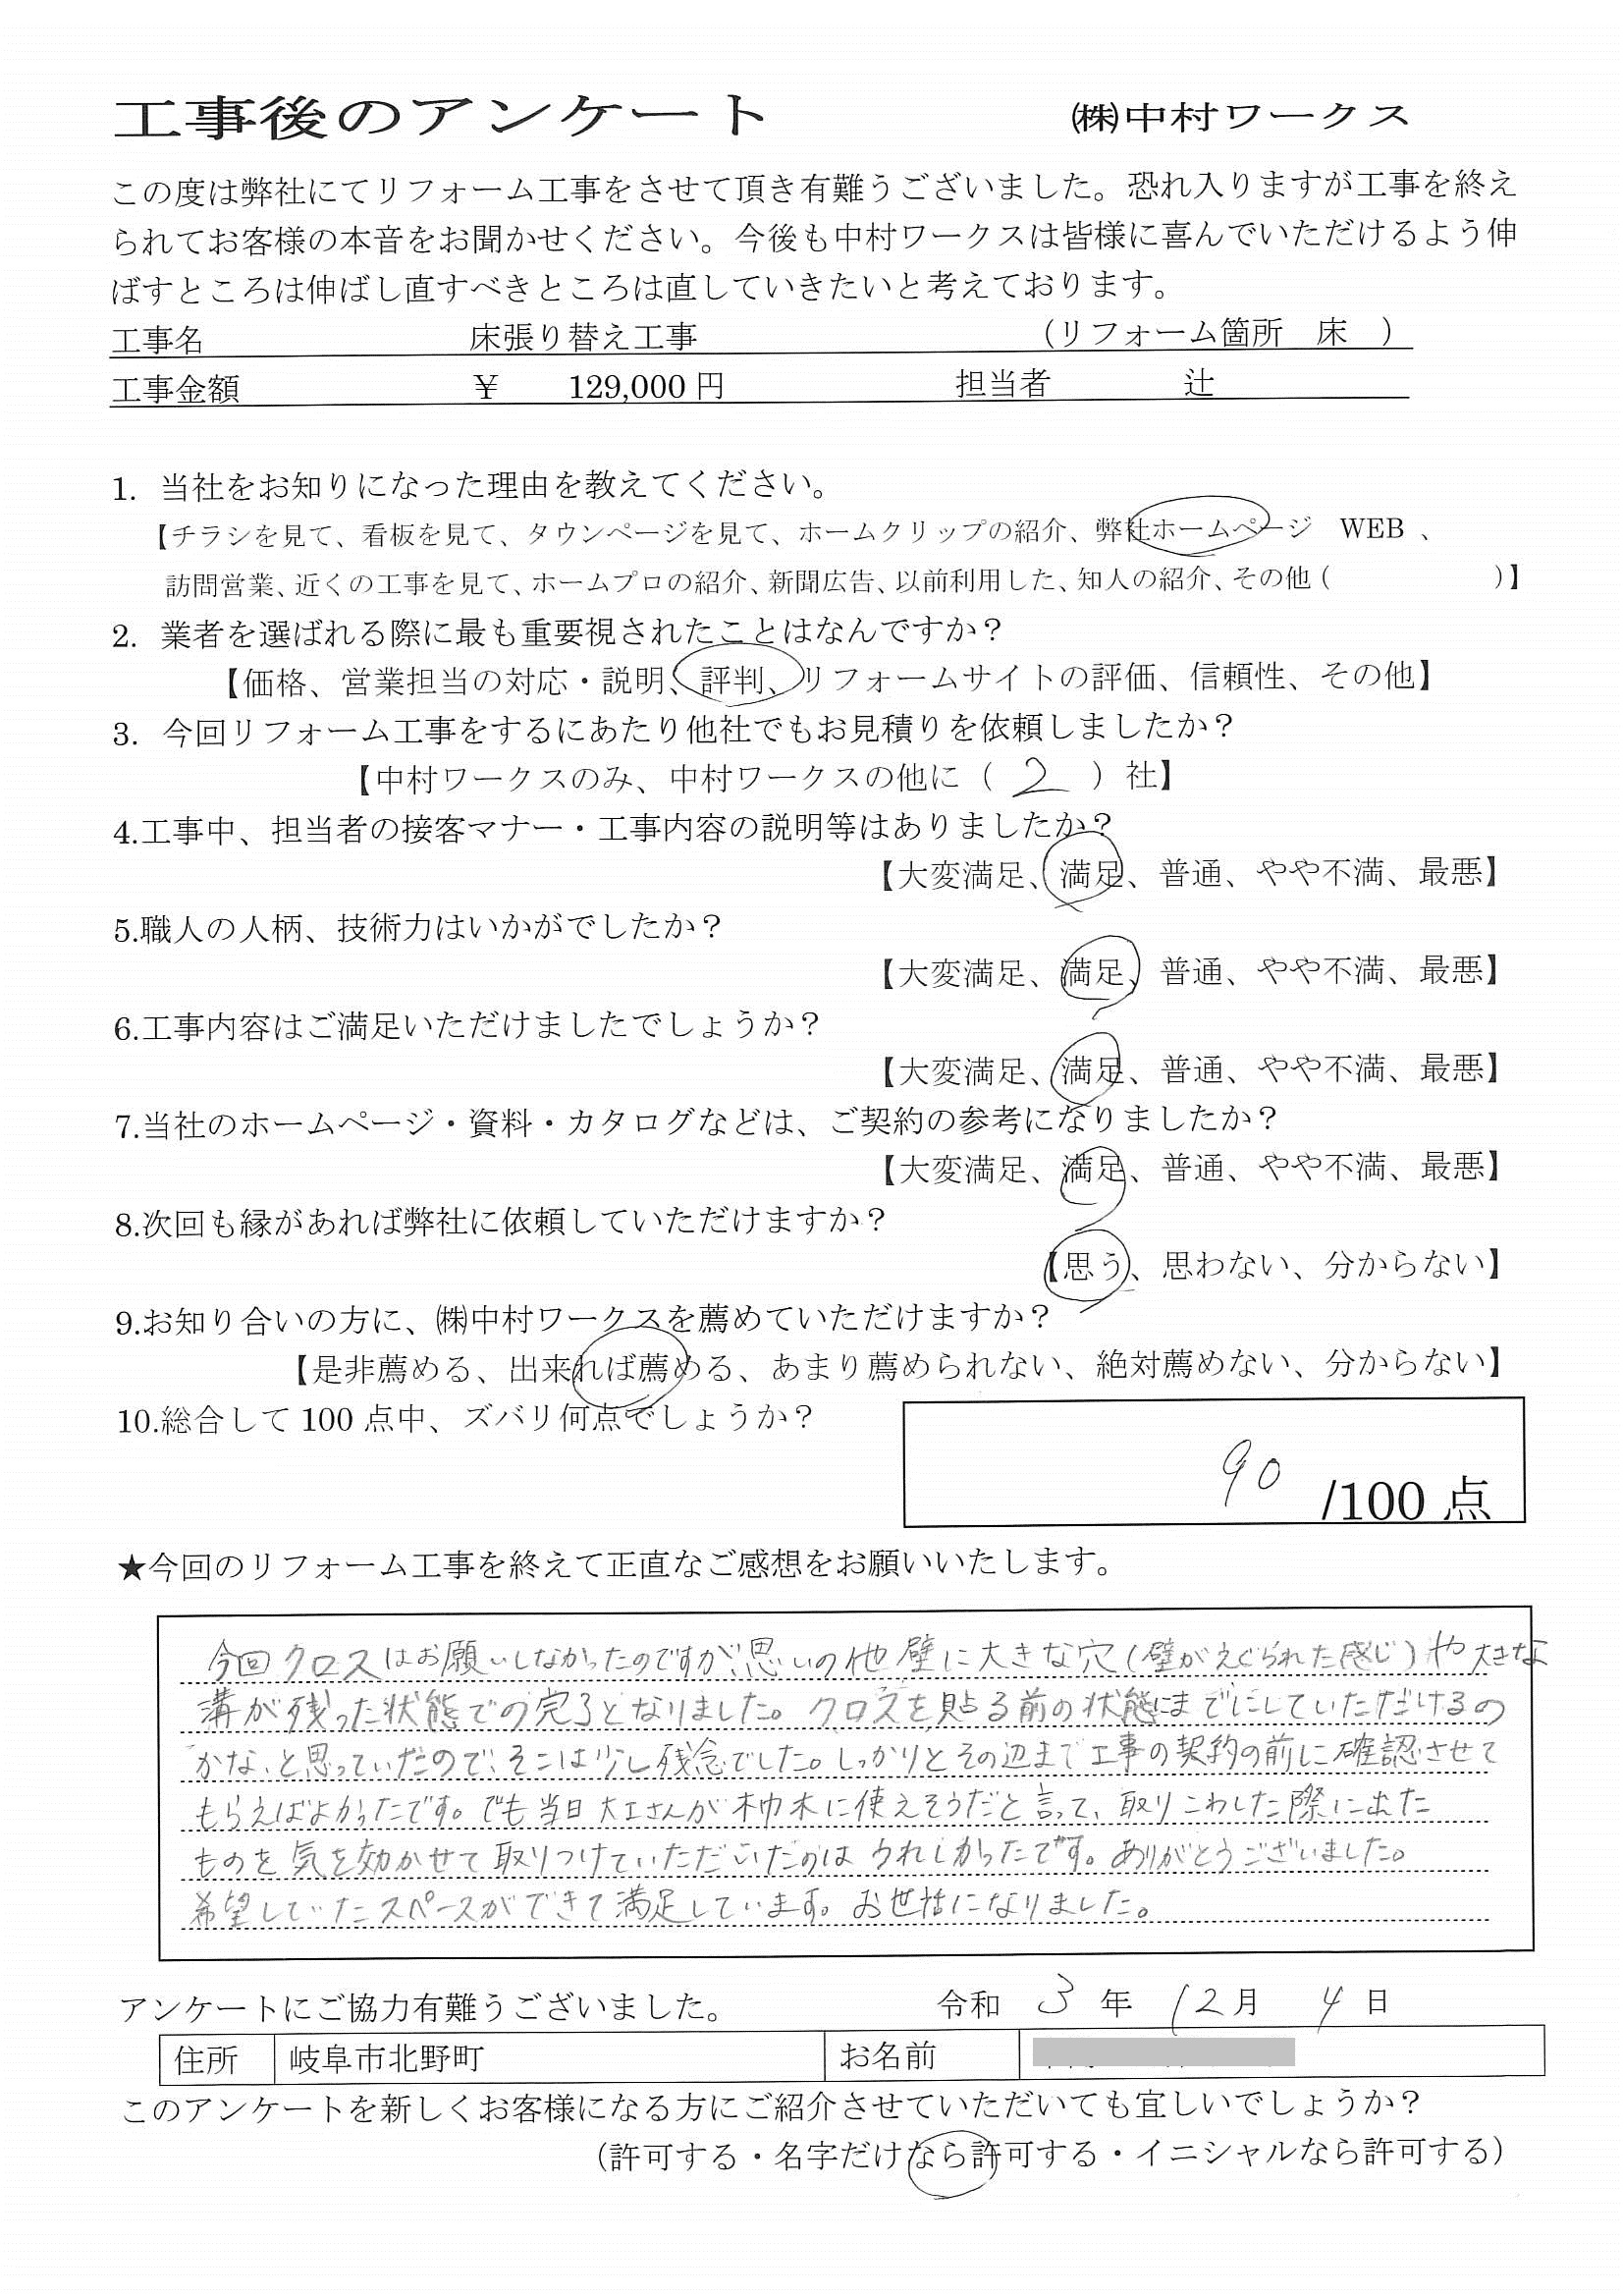 工事後のアンケート ㈱中村ワークス
この度は弊社にてリフォーム工事をさせて頂き有難うございました。恐れ入りますが工事を終え
られてお客様の本音をお聞かせください。今後も中村ワークスは皆様に喜んでいただけるよう伸
ばすところは伸ばし直すべきところは直していきたいと考えております。
工事名 床張り替え工事 （リフォーム箇所 床 ）
工事金額 ￥ 129,000 円 担当者 辻
1. 当社をお知りになった理由を教えてください。
【チラシを見て、看板を見て、タウンページを見て、ホームクリップの紹介、弊社ホームページ WEB 、
訪問営業、近くの工事を見て、ホームプロの紹介、新聞広告、以前利用した、知人の紹介、その他（ ）】
2. 業者を選ばれる際に最も重要視されたことはなんですか？
【価格、営業担当の対応・説明、評判、リフォームサイトの評価、信頼性、その他】
3. 今回リフォーム工事をするにあたり他社でもお見積りを依頼しましたか？
【中村ワークスのみ、中村ワークスの他に（ 2 ）社】
4.工事中、担当者の接客マナー・工事内容の説明等はありましたか？
【大変満足、満足、普通、やや不満、最悪】
5.職人の人柄、技術力はいかがでしたか？
【大変満足、満足、普通、やや不満、最悪】
6.工事内容はご満足いただけましたでしょうか？
【大変満足、満足、普通、やや不満、最悪】
7.当社のホームページ・資料・カタログなどは、ご契約の参考になりましたか？
【大変満足、満足、普通、やや不満、最悪】
8.次回も縁があれば弊社に依頼していただけますか？
【思う、思わない、分からない】
9.お知り合いの方に、㈱中村ワークスを薦めていただけますか？
【是非薦める、出来れば薦める、あまり薦められない、絶対薦めない、分からない】
10.総合して 100 点中、ズバリ何点でしょうか？
90 /100 点
★今回のリフォーム工事を終えて正直なご感想をお願いいたします。
今回クロスはお願いしなかったのですが、思いの他壁に大きな穴（壁がえぐられた感じ）や大きな
溝が残った状態での完了となりました。クロスを貼る前の状態にまでにしていただけるの
かな、と思っていたので、そこは少し残念でした。しっかりとその辺まで工事の契約の前に確認させて
もらえばよかったです。でも当日大工さんが枕木に使えそうだと言って、取りこわした際に出た
ものを気を効かせて取りつけていただいたのはうれしかったです。ありがとうございました。
希望していたスペースができて満足しています。お世話になりました。
アンケートにご協力有難うございました。 令和 3 年 12 月 4 日
住所 岐阜市北野町 お名前
このアンケートを新しくお客様になる方にご紹介させていただいても宜しいでしょうか？
（許可する・名字だけなら許可する・イニシャルなら許可する）